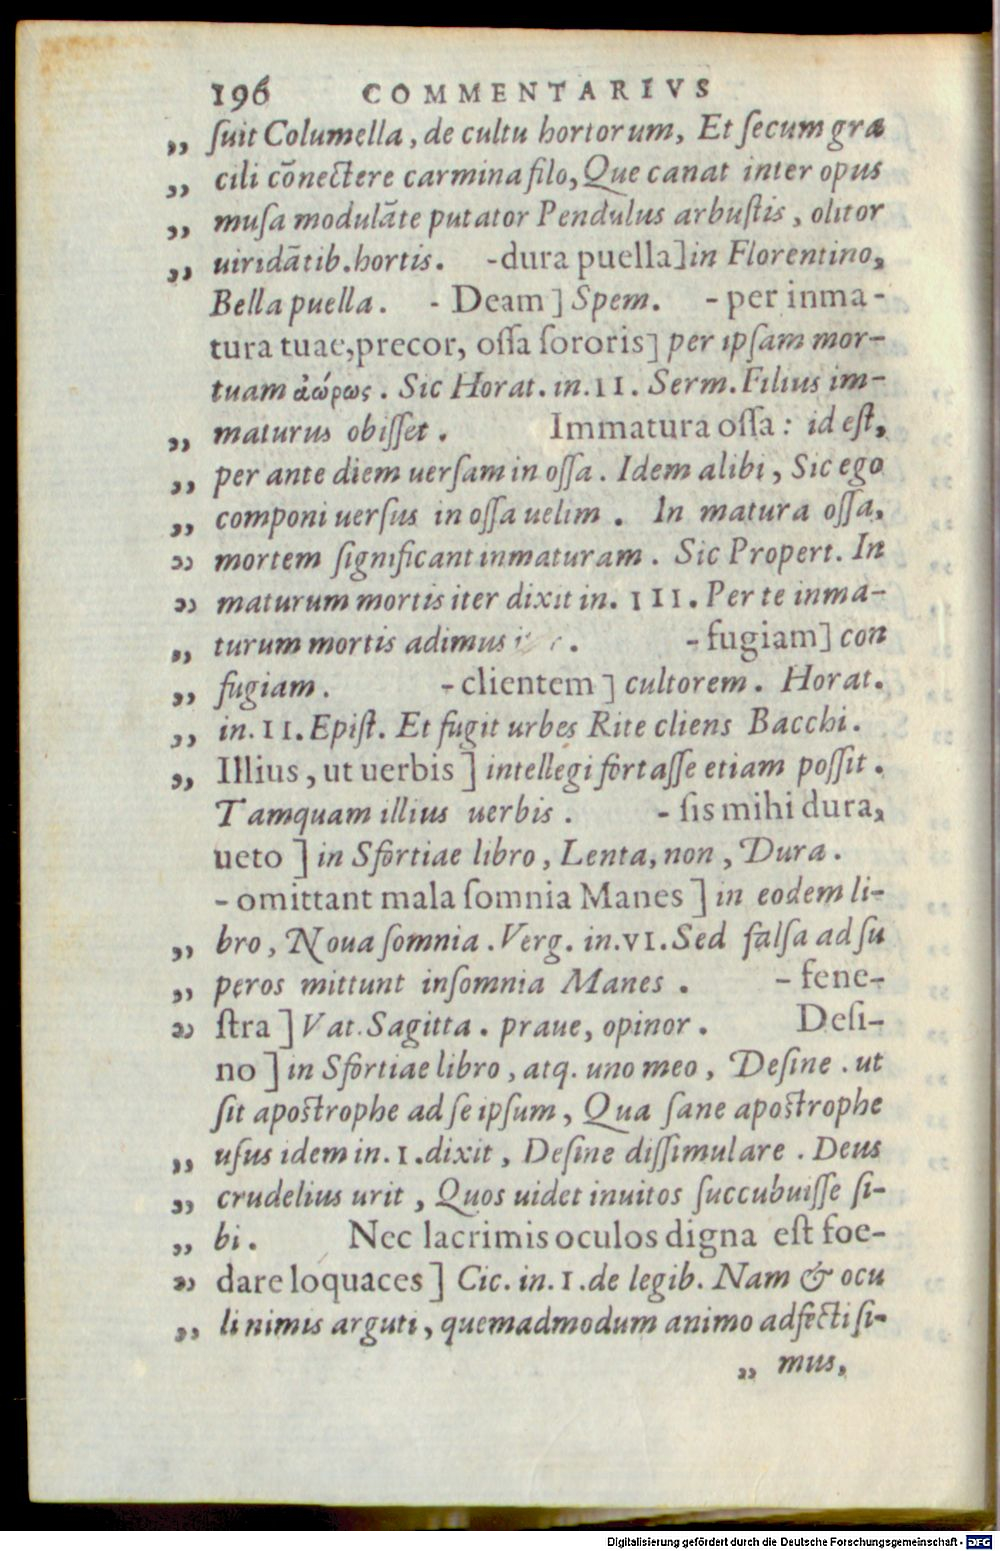 196 COMMENTARIVS
„ ſuit Columella, de cultu hortorum, Et ſecum gra
„ cili cõnectere carmina filo, Que canat inter opus
„ muſa modulãte putator Pendulus arbuſtis, olitor
„ uiridãtib. hortis. -dura puella] in Florentino,
Bella puella. - Deam] Spem. - per inma-
tura tuae, precor, oſſa ſororis] per ipſam mor-
tuam ἀώρως. Sic Horat. in. II. Serm. Filius im-
„ maturus obiſſet. Immatura oſſa: id eſt,
„ per ante diem uerſam in oſſa. Idem alibi, Sic ego
„ componi uerſus in oſſa uelim. In matura oſſa,
„ mortem ſignificant inmaturam. Sic Propert. In
„ maturum mortis iter dixit in. III. Per te inma-
„ turum mortis adimus . - fugiam] con
„ fugiam. - clientem] cultorem. Horat.
„ in. II. Epiſt. Et fugit urbes Rite cliens Bacchi.
„ Illius, ut uerbis] intellegi fortaſſe etiam poſſit.
Tamquam illius uerbis. - ſis mihi dura,
ueto] in Sfortiae libro, Lenta, non, Dura.
- omittant mala ſomnia Manes] in eodem li-
„ bro, Noua ſomnia. Verg. in. VI. Sed falſa ad ſu
„ peros mittunt inſomnia Manes. - fene-
„ ſtra] Vat. Sagitta. praue, opinor. Deſi-
no] in Sfortiae libro, atq. uno meo, Deſine. ut
ſit apoſtrophe ad ſe ipſum, Qua ſane apoſtrophe
„ uſus idem in. I. dixit, Deſine diſſimulare. Deus
„ crudelius urit, Quos uidet inuitos ſuccubuiſſe ſi-
„ bi. Nec lacrimis oculos digna eſt foe-
„ dare loquaces] Cic. in. I. de legib. Nam & ocu
„ li nimis arguti, quemadmodum animo adfecti ſi-
„ mus,
Digitalisierung gefördert durch die Deutsche Forschungsgemeinschaft - DFG